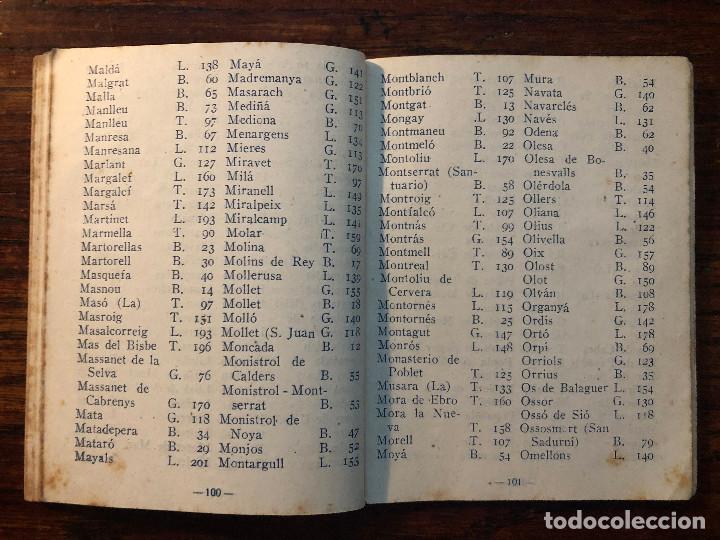 Maldá L. 138
Malgrat B. 60
Malla B. 65
Manlleu B. 73
Manlleu T. 97
Manresa B. 67
Manresana L. 112
Marlant G. 127
Margalef L. 160
Margalcí T. 173
Marsá T. 142
Martinet L. 193
Marmella T. 90
Martorellas B. 23
Martorell B. 30
Masquefa B. 40
Masnou B. 14
Masó (La) T. 97
Masroig T. 151
Masalcorreig L. 193
Mas del Bisbe T. 196
Massanet de la
Selva G. 76
Massanet de
Cabrenys G. 170
Mata G. 118
Matadepera B. 34
Mataró B. 29
Mayals L. 201
Mayá G. 141
Madremanya G. 122
Masarach G. 151
Mediñá G. 113
Mediona B.
Menargens L. 134
Mieres G. 113
Miravet T. 170
Milá T. 97
Miranell L. 149
Miralpeix L. 135
Miralcamp L. 141
Molar T. 159
Molina T. 69
Molins de Rey B. 17
Mollerusa L. 139
Mollet G. 155
Mollet B. 18
Molló G. 140
Mollet (S. Juan G. 118
Moncada B. 12
Monistrol de
Calders B. 55
Monistrol - Mont-
serrat B. 53
Monistrol de
Noya B. 47
Monjos B. 52
Montargull L. 153
— 100 —
Montblanch T. 107
Montbrió T. 125
Montgat B. 13
Mongay .L 130
Montmaneu B. 92
Montmeló B. 22
Montoliu L. 170
Montserrat (San-
tuario) B. 58
Montroig T. 125
Montfalcó L. 107
Montnás T. 99
Montrás G. 154
Montmell T. 89
Montreal T. 130
Montoliu de
Cervera L. 119
Montornés L. 115
Montornés B. 25
Montagut G. 147
Monrós L. 148
Monasterio de
Poblet T. 125
Musara (La) T. 133
Mora de Ebro T. 160
Mora la Nue-
va T. 158
Morell T. 107
Moyá B. 54
Mura B. 54
Navata G. 140
Navarclés B. 62
Navés L. 131
Odena B. 62
Olesa B. 40
Olesa de Bo-
nesvalls B. 35
Olérdola B. 54
Ollers T. 114
Oliana L. 146
Olius L. 122
Olivella B. 56
Oix G. 157
Olost B. 89
Olot G. 150
Olván B. 108
Organyá L. 178
Ordis G. 142
Ortó L. 178
Orpi B. 69
Orriols G. 123
Orrius B. 35
Os de Balaguer L. 154
Ossor G. 130
Ossó de Sió L. 118
Ossosmort (San
Sadurní) B. 79
Omellons L. 140
— 101 —
todocoleccion.net